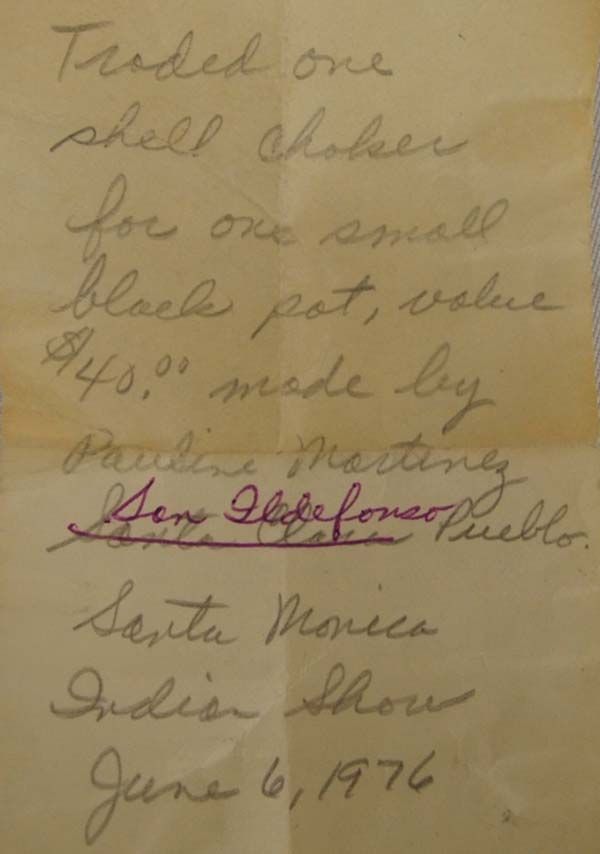 Traded one
shell choker
for one small
black pot, value
$40.00 made by
Pauline Martinez
San Ildefonso
Santa Clara Pueblo.
Santa Monica
Indian Show
June 6, 1976